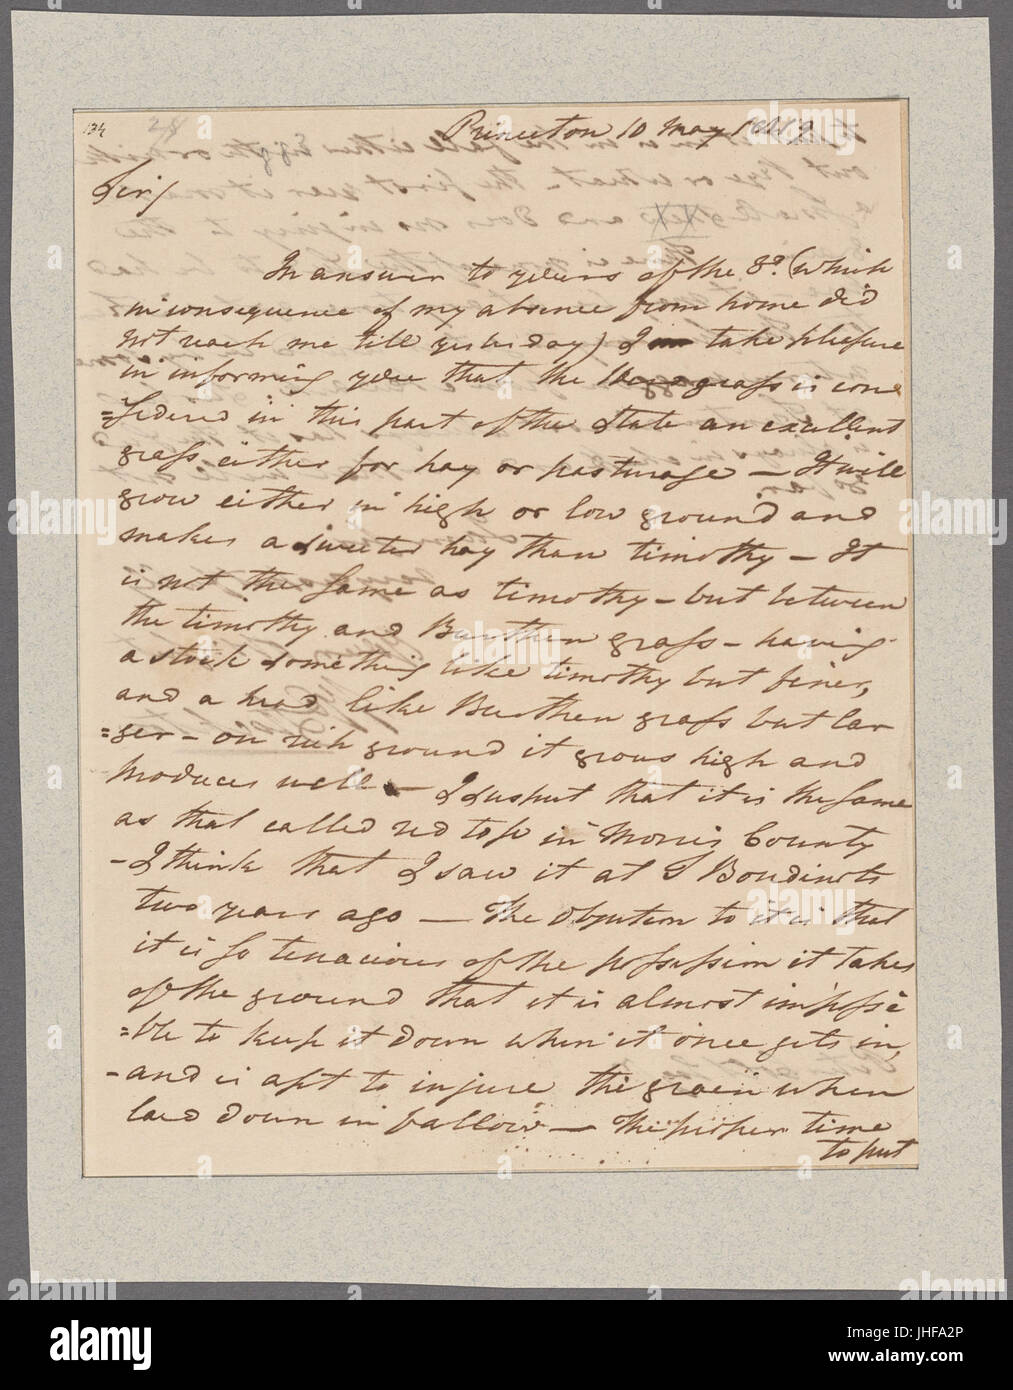 134 28
Princeton 10 May
Sir,
In answer to yours of the 8th (which
in consequence of my absence from home did
not reach me till yesterday) I take pleasure
in informing you that the Herd grass is con
=sidered in this part of the State an excellent
grass either for hay or pasturage — It will
grow either in high or low ground and
makes a sweeter hay than timothy — It
is not the same as timothy — but between
the timothy and Burthen grass — having
a stock something like timothy but finer,
and a head like Burthen grass but lar
=ger — on rich ground it grows high and
produces well — I suspect that it is the same
as that called red top in Morris County
- I think that I saw it at S Boudinots
two years ago — The objection to it is that
it is so tenacious of the possession it takes
of the ground that it is almost impossi
=ble to keep it down when it once gets in,
- and is apt to injure the grain when
laid down in fallow — The proper time
to put
alamy
Image ID: JHFA2P
www.alamy.com